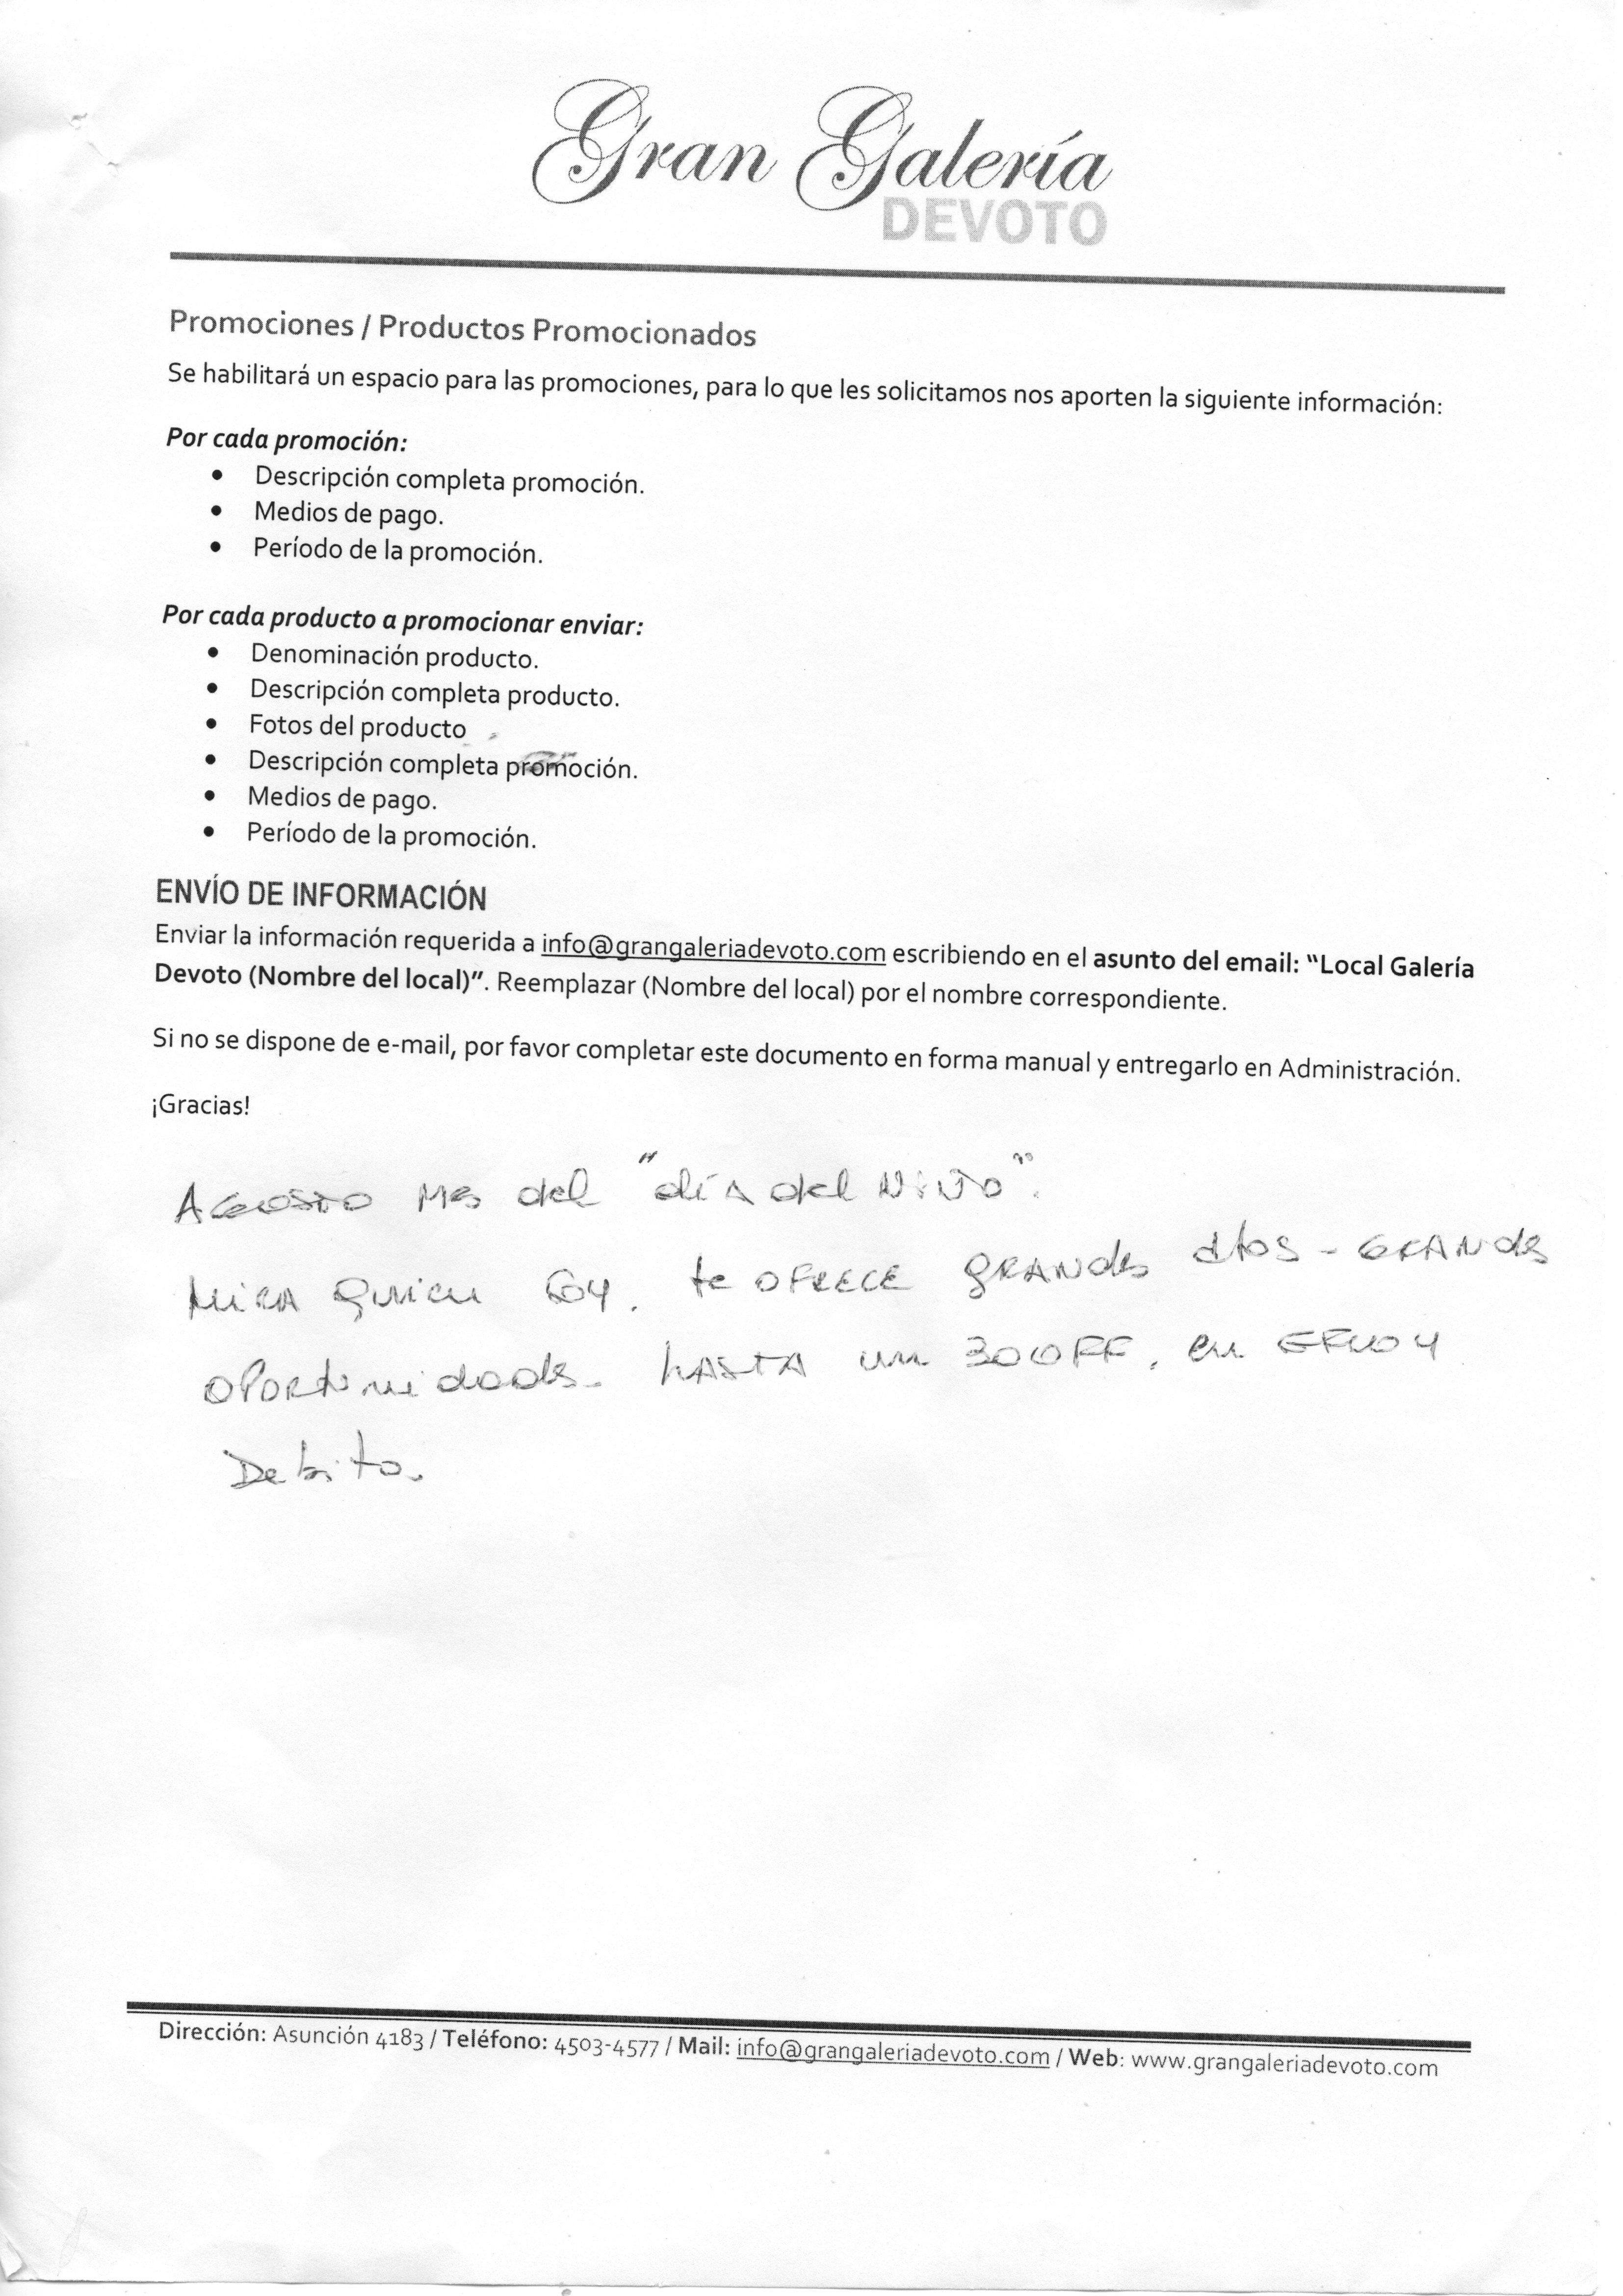 Gran Galería
DEVOTO
Promociones / Productos Promocionados
Se habilitará un espacio para las promociones, para lo que les solicitamos nos aporten la siguiente información:
Por cada promoción:
• Descripción completa promoción.
• Medios de pago.
• Período de la promoción.
Por cada producto a promocionar enviar:
• Denominación producto.
• Descripción completa producto.
• Fotos del producto
• Descripción completa promoción.
• Medios de pago.
• Período de la promoción.
ENVÍO DE INFORMACIÓN
Enviar la información requerida a info@grangaleriadevoto.com escribiendo en el asunto del email: “Local Galería
Devoto (Nombre del local)”. Reemplazar (Nombre del local) por el nombre correspondiente.
Si no se dispone de e-mail, por favor completar este documento en forma manual y entregarlo en Administración.
¡Gracias!
AGOSTO Mes del "díA del NiÑo".
MiRA quien te OFRECE gRANdes dtos - GRANdes
OPORtunidades. hASTA un 30 OFF, en
Debito.
Dirección: Asunción 4183 / Teléfono: 4503-4577 / Mail: info@grangaleriadevoto.com / Web: www.grangaleriadevoto.com